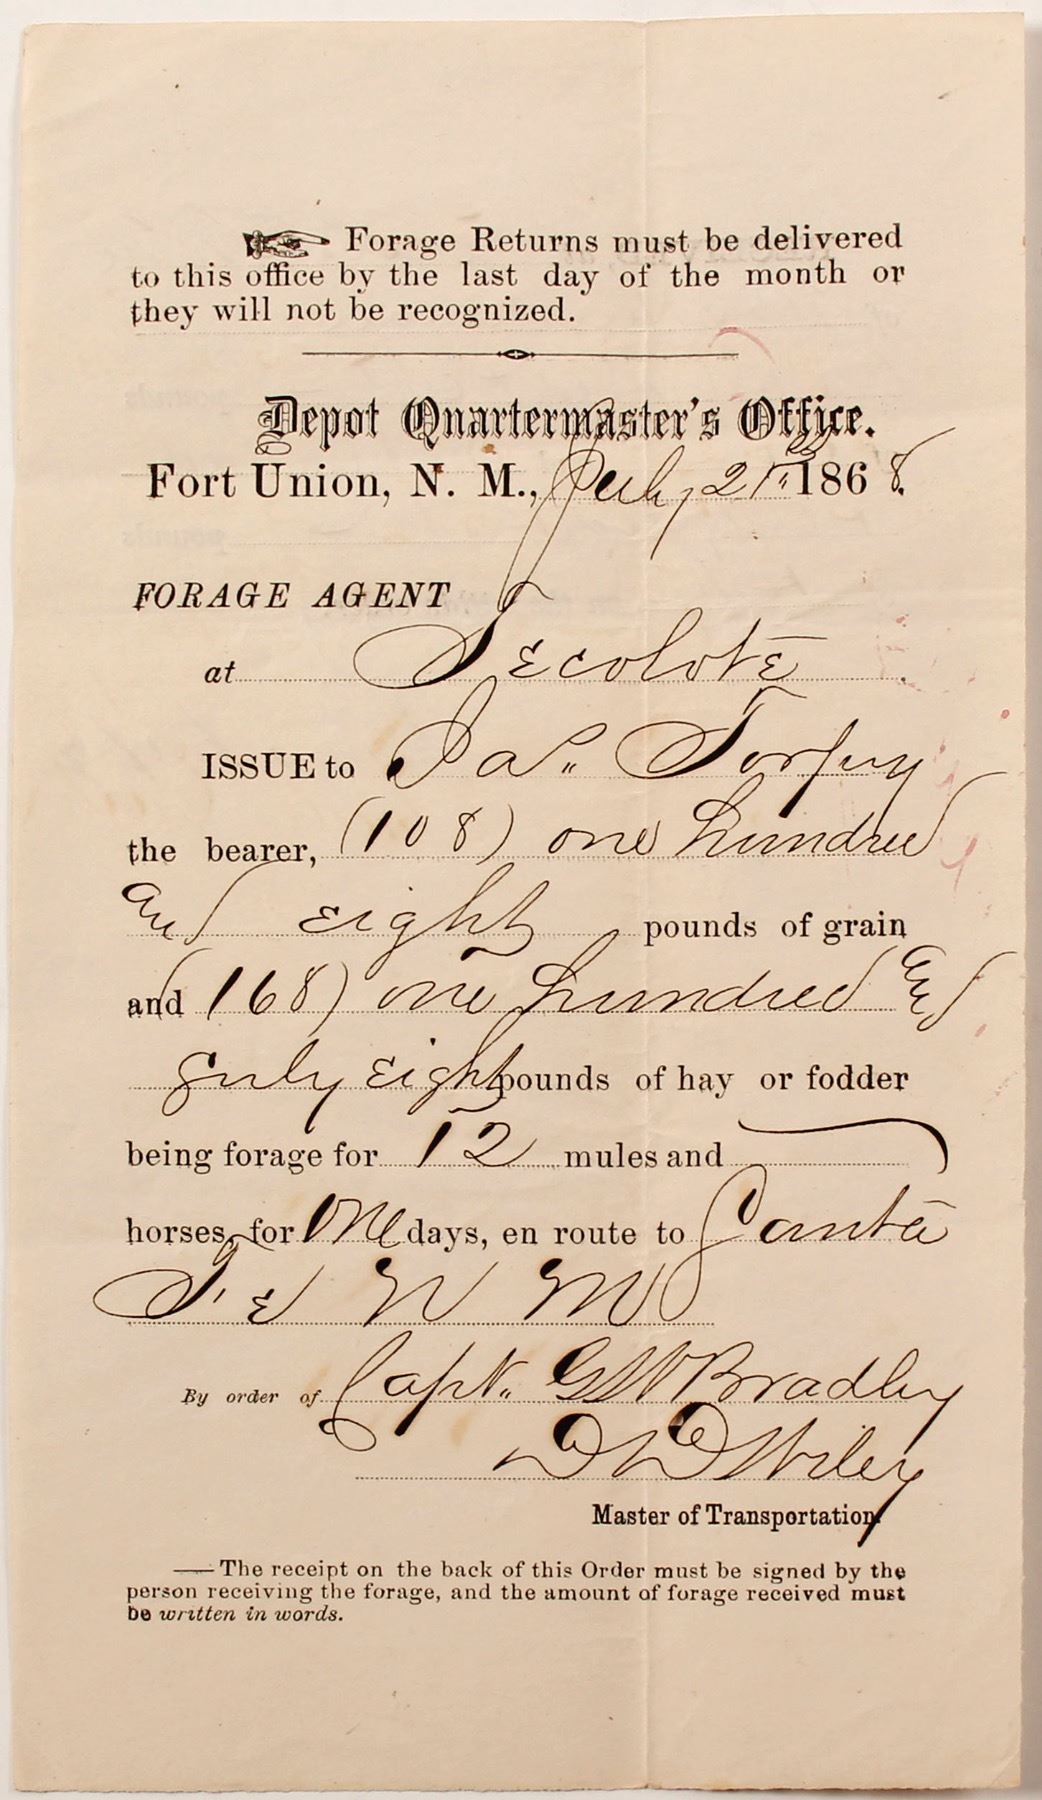 Forage Returns must be delivered
to this office by the last day of the month or
they will not be recognized.
Depot Quartermaster's Office.
Fort Union, N. M., July 21st 1868.
FORAGE AGENT
at Tecolote
ISSUE to Jas. Torpuy
the bearer, (108) one hundred
and eight pounds of grain
and (168) one hundred and
sixty eight pounds of hay or fodder
being forage for 12 mules and
horses, for One days, en route to Santa
Fe N M
By order of Capt. G W Bradley
Wiley
Master of Transportation.
— The receipt on the back of this Order must be signed by the
person receiving the forage, and the amount of forage received must
be written in words.